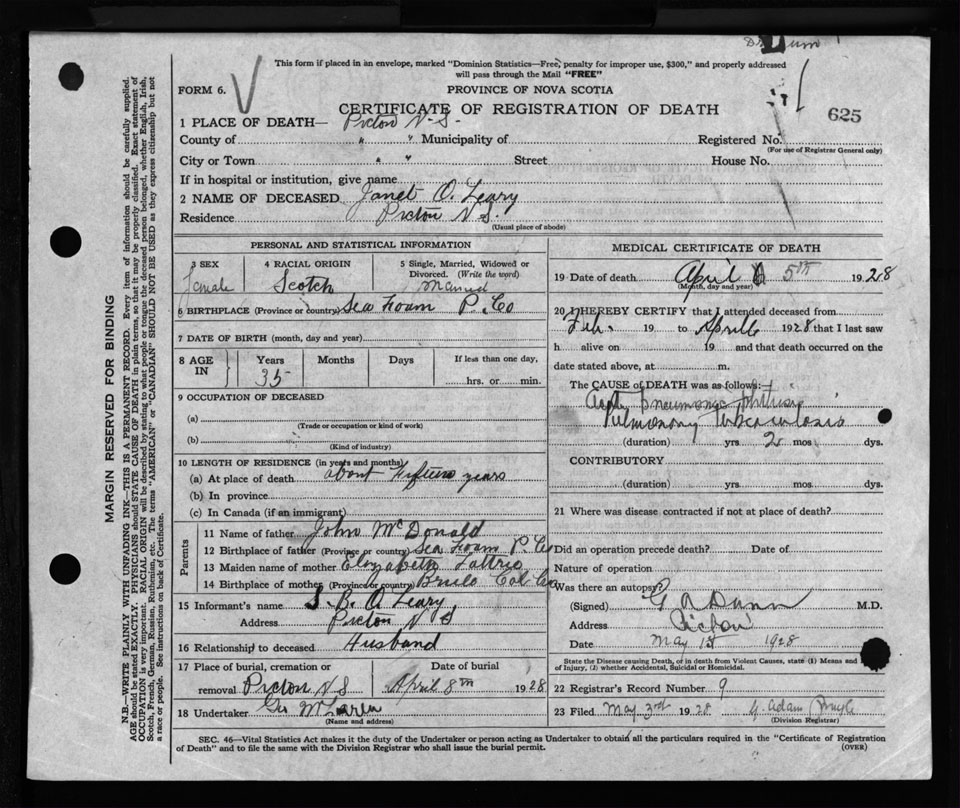 This form if placed in an envelope, marked "Dominion Statistics—Free, penalty for improper use, $300," and properly addressed
will pass through the Mail "FREE"
FORM 6. PROVINCE OF NOVA SCOTIA
CERTIFICATE OF REGISTRATION OF DEATH 625
1 PLACE OF DEATH— Pictou N.S.
County of " " Municipality of Registered No.
(For use of Registrar General only)
City or Town " " Street House No.
If in hospital or institution, give name
2 NAME OF DECEASED Janet O. Leary
Residence Pictou N.S.
(Usual place of abode)
PERSONAL AND STATISTICAL INFORMATION
3 SEX 4 RACIAL ORIGIN 5 Single, Married, Widowed or
Divorced. (Write the word)
Female Scotch Married
6 BIRTHPLACE (Province or country) Sea Foam P. Co
7 DATE OF BIRTH (month, day and year)
8 AGE IN Years Months Days If less than one day,
35 hrs. or min.
9 OCCUPATION OF DECEASED
(a)
(Trade or occupation or kind of work)
(b)
(Kind of industry)
10 LENGTH OF RESIDENCE (in years and months)
(a) At place of death about fifteen years
(b) In province
(c) In Canada (if an immigrant)
Parents
11 Name of father John McDonald
12 Birthplace of father (Province or country) Sea Foam P. Co
13 Maiden name of mother Elizabeth
14 Birthplace of mother (Province or country) Col. Co
15 Informant's name J. B. O. Leary
Address Pictou N S
16 Relationship to deceased Husband
17 Place of burial, cremation or Date of burial
removal Pictou N S April 8th 1928
18 Undertaker Geo McLaren
(Name and address)
MEDICAL CERTIFICATE OF DEATH
19 Date of death April 5th 1928
(Month, day and year)
20 I HEREBY CERTIFY that I attended deceased from
Feb. 19 to April 6 1928 that I last saw
h alive on 19 and that death occurred on the
date stated above, at m.
The CAUSE of DEATH was as follows:
pneumonic phthisis
Pulmonary tuberculosis
(duration) yrs 2 mos dys.
CONTRIBUTORY
(duration) yrs. mos. dys.
21 Where was disease contracted if not at place of death?
Did an operation precede death? Date of
Nature of operation
Was there an autopsy?
(Signed) G A Dunn M.D.
Address Pictou
Date May 1st 1928
State the Disease causing Death, or in death from Violent Causes, state (1) Means and
of Injury, (2) whether Accidental, Suicidal or Homicidal.
22 Registrar's Record Number 9
23 Filed May 3rd 1928 G. Adam
(Division Registrar)
SEC. 46—Vital Statistics Act makes it the duty of the Undertaker or person acting as Undertaker to obtain all the particulars required in the "Certificate of Registration
of Death" and to file the same with the Division Registrar who shall issue the burial permit. (OVER)
MARGIN RESERVED FOR BINDING
N.B.—WRITE PLAINLY WITH UNFADING INK—THIS IS A PERMANENT RECORD. Every item of information should be carefully supplied.
AGE should be stated EXACTLY. PHYSICIANS should STATE CAUSE OF DEATH in plain terms, so that it may be properly classified. Exact statement of
OCCUPATION is very important. RACIAL ORIGIN will be described by stating to what people or tongue the deceased person belonged, whether English, Irish,
Scotch, French, German, Russian, Ruthenian, etc. The terms "AMERICAN" or "CANADIAN" SHOULD NOT BE USED as they express citizenship but not
a race or people. See instructions on back of Certificate.